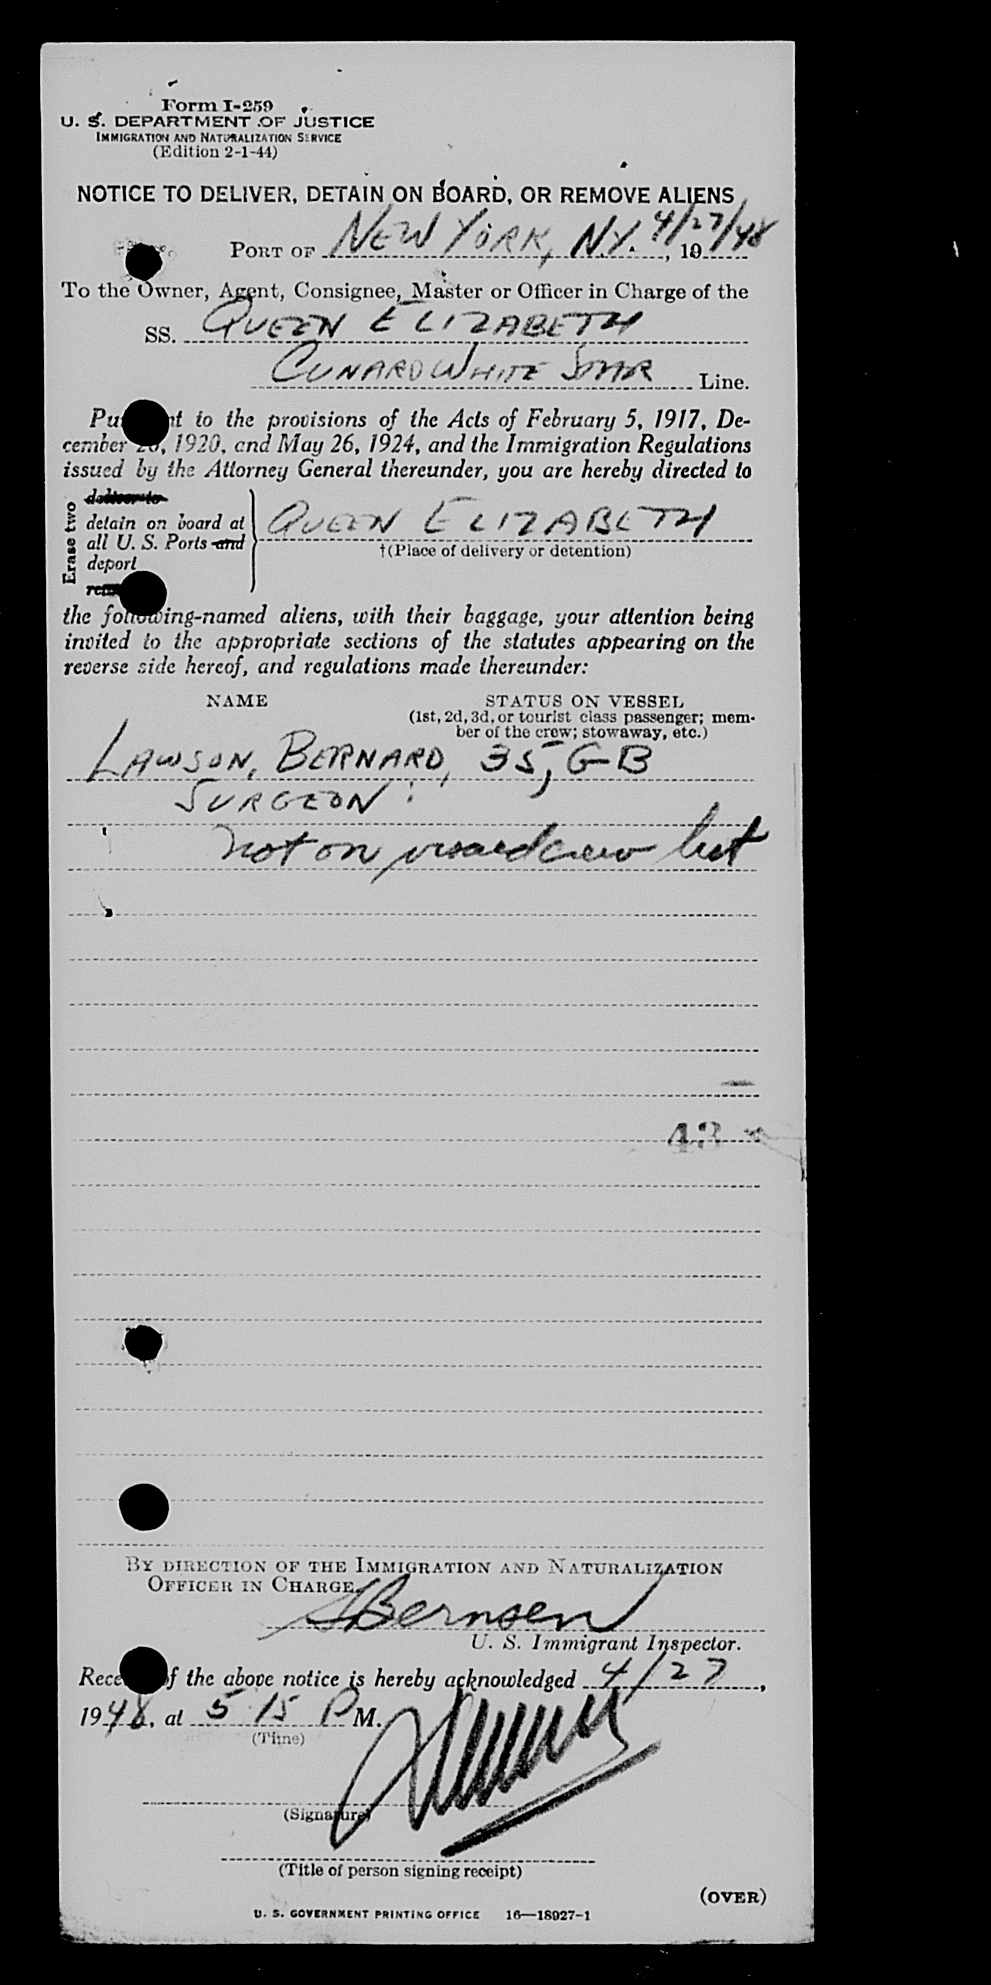 Form I-259
U. S. DEPARTMENT OF JUSTICE
IMMIGRATION AND NATURALIZATION SERVICE
(Edition 2-1-44)
NOTICE TO DELIVER, DETAIN ON BOARD, OR REMOVE ALIENS
PORT OF NEW YORK, N.Y. 4/27/48, 19
To the Owner, Agent, Consignee, Master or Officer in Charge of the
SS. QUEEN ELIZABETH
CUNARD WHITE STAR Line.
Pu t to the provisions of the Acts of February 5, 1917, De-
cember 26, 1920, and May 26, 1924, and the Immigration Regulations
issued by the Attorney General thereunder, you are hereby directed to
Erase two
deliver to
detain on board at
all U. S. Ports and
deport
QUEEN ELIZABETH
†(Place of delivery or detention)
the following-named aliens, with their baggage, your attention being
invited to the appropriate sections of the statutes appearing on the
reverse side hereof, and regulations made thereunder:
NAME STATUS ON VESSEL
(1st, 2d, 3d, or tourist class passenger; mem-
ber of the crew; stowaway, etc.)
LAWSON, BERNARD, 35, GB
SURGEON:
not on visaed crew list
43
BY DIRECTION OF THE IMMIGRATION AND NATURALIZATION
OFFICER IN CHARGE
Bernsen
U. S. Immigrant Inspector.
Rece f the above notice is hereby acknowledged 4/27,
1948, at 5 15 P M.
(Time)
(Signature)
(Title of person signing receipt)
(OVER)
U. S. GOVERNMENT PRINTING OFFICE 16—18927-1